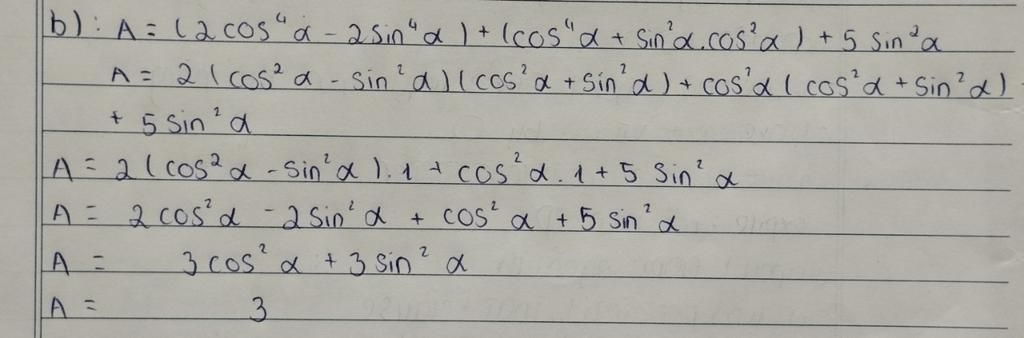 b): A = (2cos⁴α - 2sin⁴α) + (cos⁴α + sin²α.cos²α) + 5 sin²α
A = 2(cos²α - sin²α)(cos²α + sin²α) + cos²α(cos²α + sin²α)
+ 5 sin²α
A = 2(cos²α - sin²α).1 + cos²α.1 + 5 sin²α
A = 2cos²α - 2sin²α + cos²α + 5 sin²α
A = 3cos²α + 3sin²α
A = 3